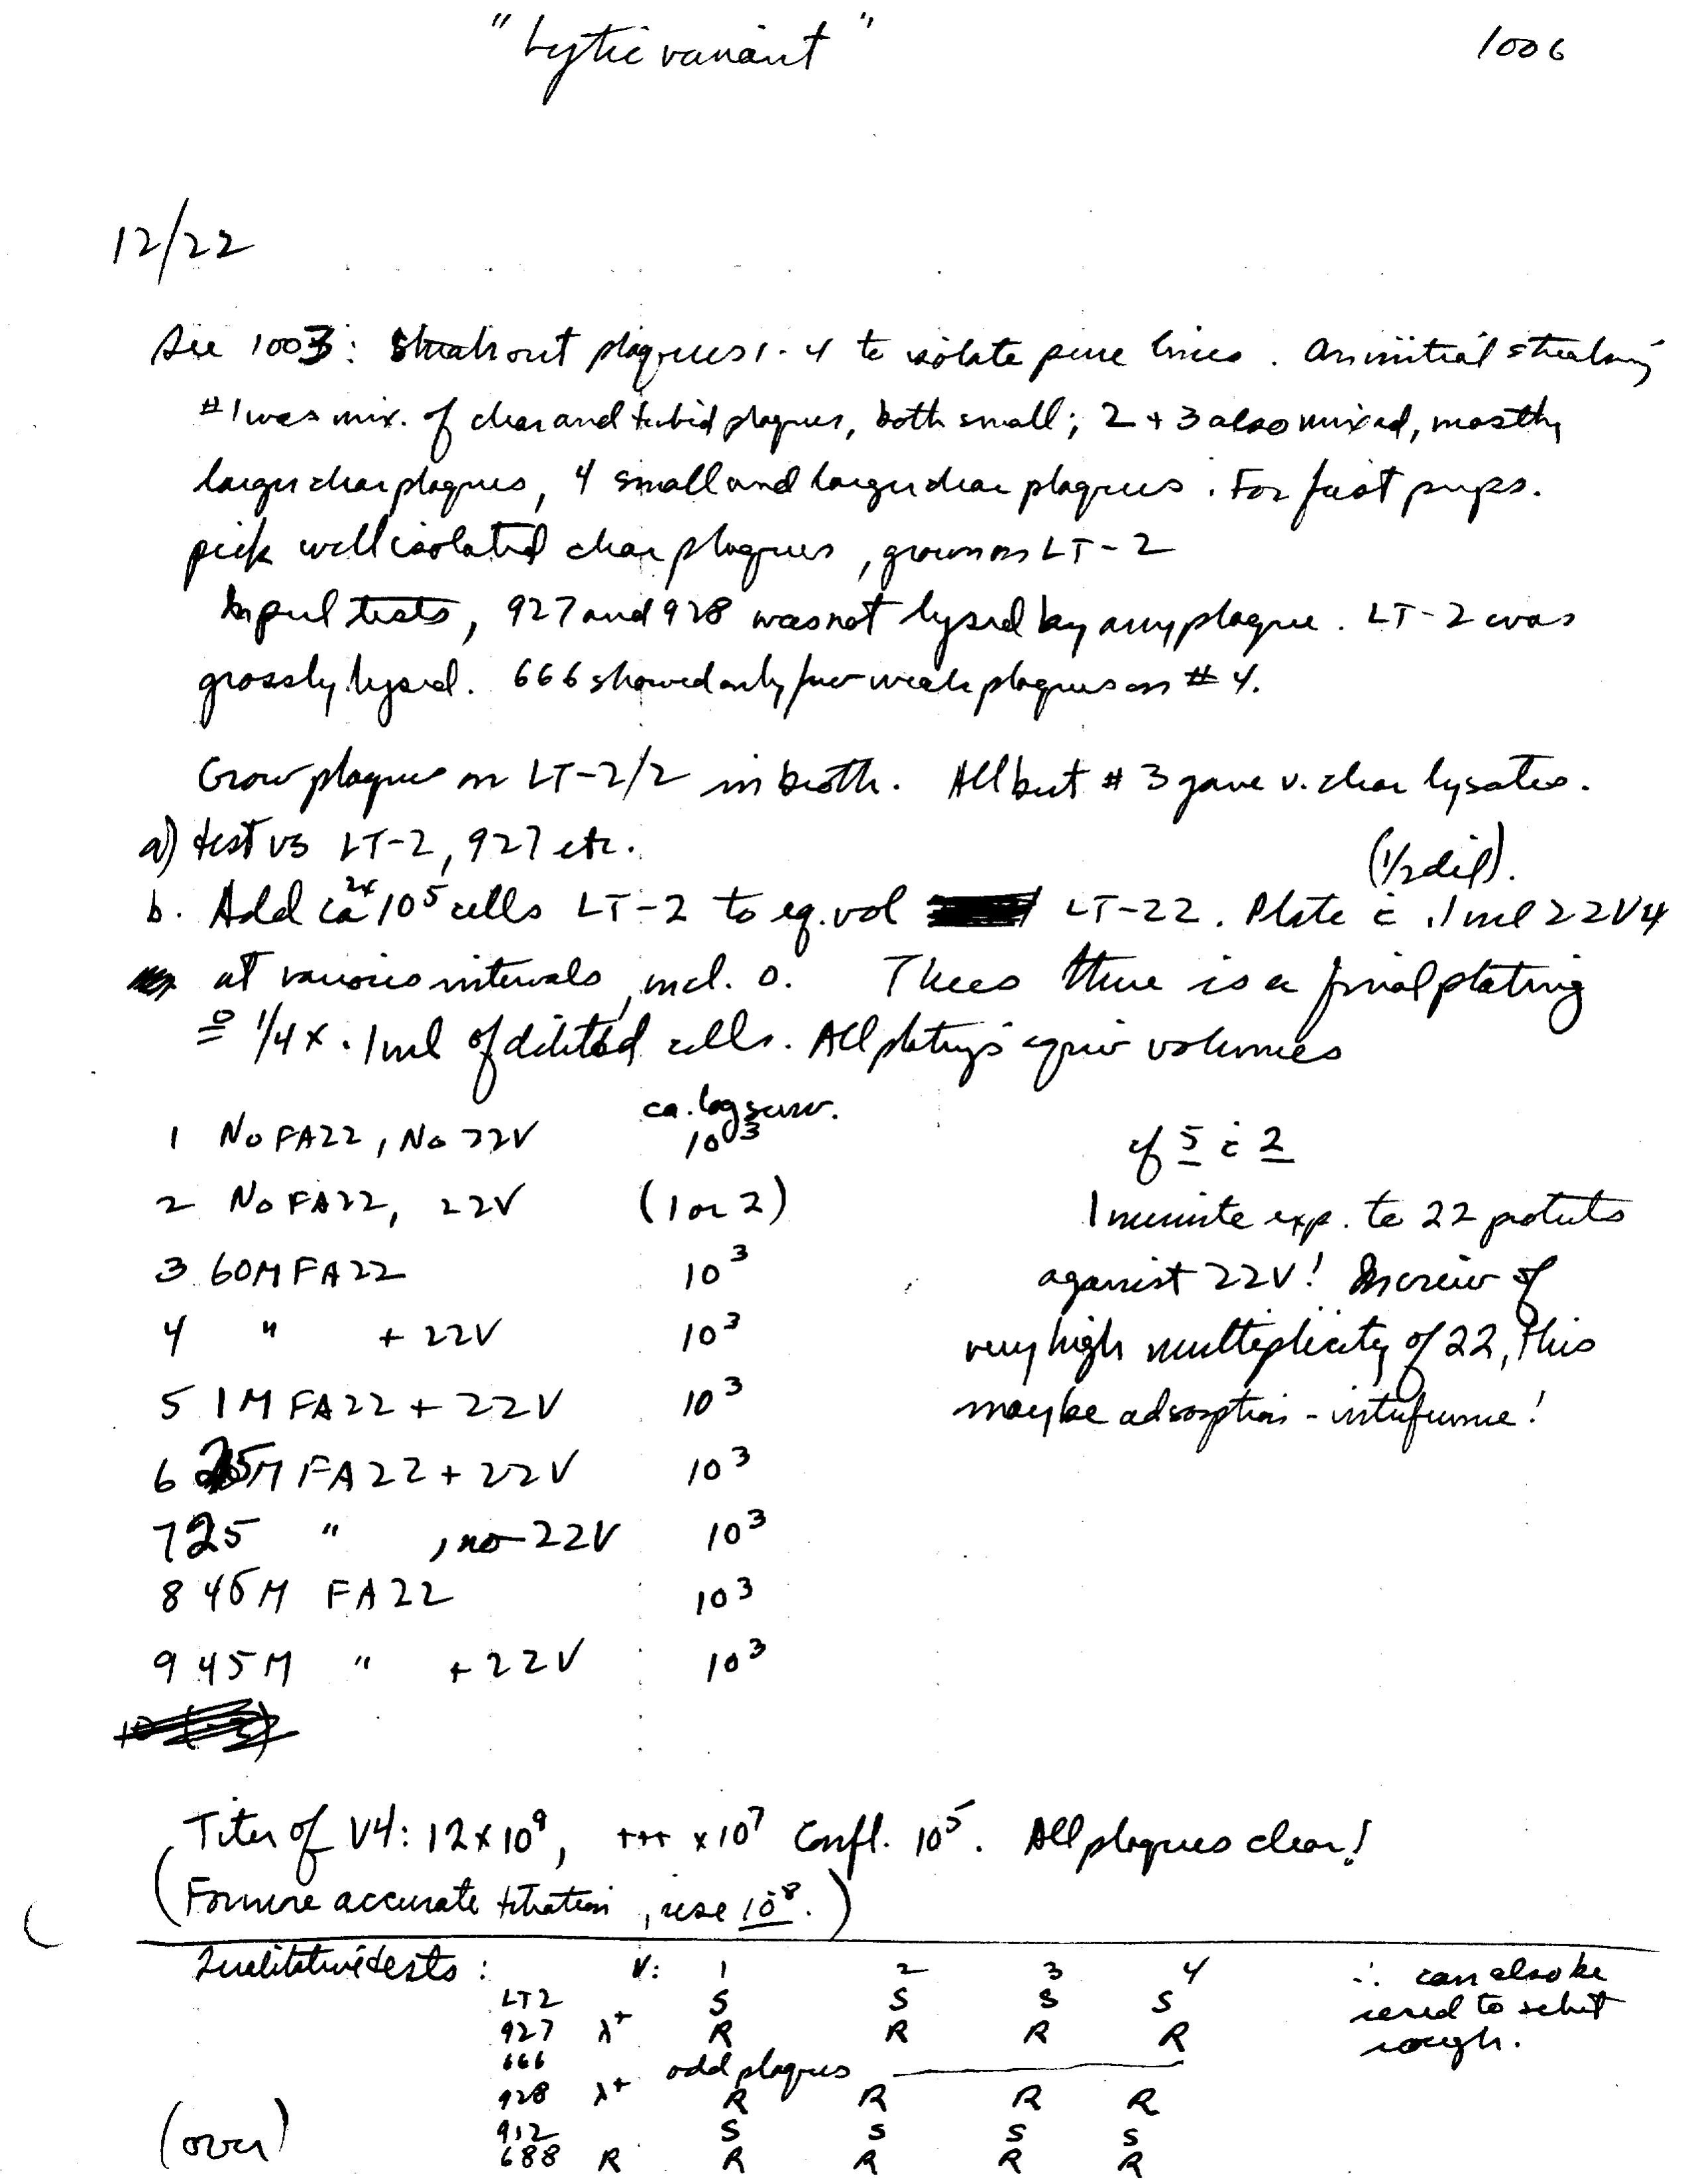 "Lytic variant"
1006
12/22
See 1003: Streak out plaques 1-4 to isolate pure lines. On initial streaking
#1 was mix. of clear and turbid plaques, both small; 2 + 3 also mixed, mostly
larger clear plaques, 4 small and larger clear plaques. For first preps.
pick well isolated clear plaques, grown on LT-2
tests, 927 and 928 was not lysed by any plaque. LT-2 was
grossly lysed. 666 showed only few weak plaques on #4.
Grow plaques on LT-2/2 in broth. All but #3 gave v. clear lysates.
a) test vs LT-2, 927 etc.
(1/2 dil).
b. Add ca 2x 10⁵ cells LT-2 to eq. vol LT-22. Plate c̄ .1 ml 22V4
at various intervals, incl. 0. Thus there is a final plating
≡ 1/4 x .1 ml of diluted cells. All platings equiv volumes
ca. log surv.
1 No FA22, No 22V 10³
2 No FA22, 22V (1 or 2)
3 60M FA22 10³
4 " + 22V 10³
5 1M FA22 + 22V 10³
6 25M FA22 + 22V 10³
7 25 " , no 22V 10³
8 45M FA22 10³
9 45M " + 22V 10³
cf 5 c̄ 2
1 minute exp. to 22 protects
against 22V! In view of
very high multiplicity of 22, this
may be adsorption-interference!
Titer of V4: 12 x 10⁹, +++ x 10⁷ Confl. 10⁵. All plaques clear!
(For more accurate titration, use 10⁸.)
Qualitative tests: V: 1 2 3 4
LT2 S S S S
927 λ+ R R R R
666 odd plaques
928 λ+ R R R R
912 S S S S
688 R R R R R
∴ can also be
used to select
rough.
(over)